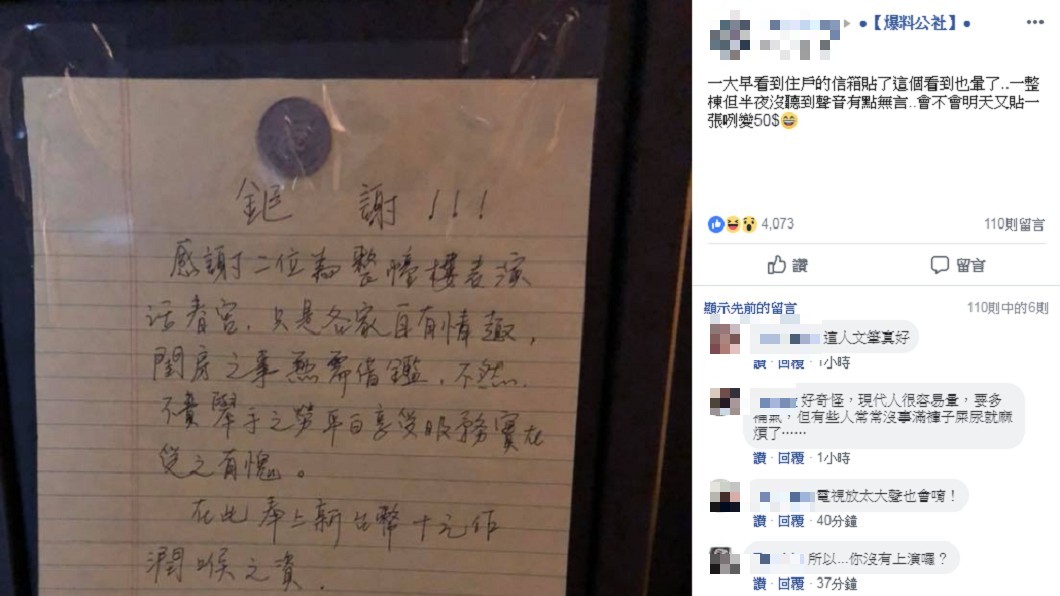 鉅 謝!!!
感謝二位為整幢樓表演
活春宮,只是各家自有情趣,
閨房之事無需借鑑,不然,
不費舉手之勞平白享受服務實在
受之有愧。
在此奉上新台幣十元作
潤喉之資.
【爆料公社】
一大早看到住戶的信箱貼了這個看到也暈了..一整
棟但半夜沒聽到聲音有點無言..會不會明天又貼一
張咧變50$😄
4,073
110則留言
讚
留言
顯示先前的留言
110則中的6則
這人文筆真好
讚 · 回覆 · 1小時
好奇怪,現代人很容易暈,要多
補氣,但有些人常常沒事滿褲子屎尿就麻
煩了……
讚 · 回覆 · 1小時
電視放太大聲也會唷!
讚 · 回覆 · 40分鐘
所以...你沒有上演喔?
讚 · 回覆 · 37分鐘